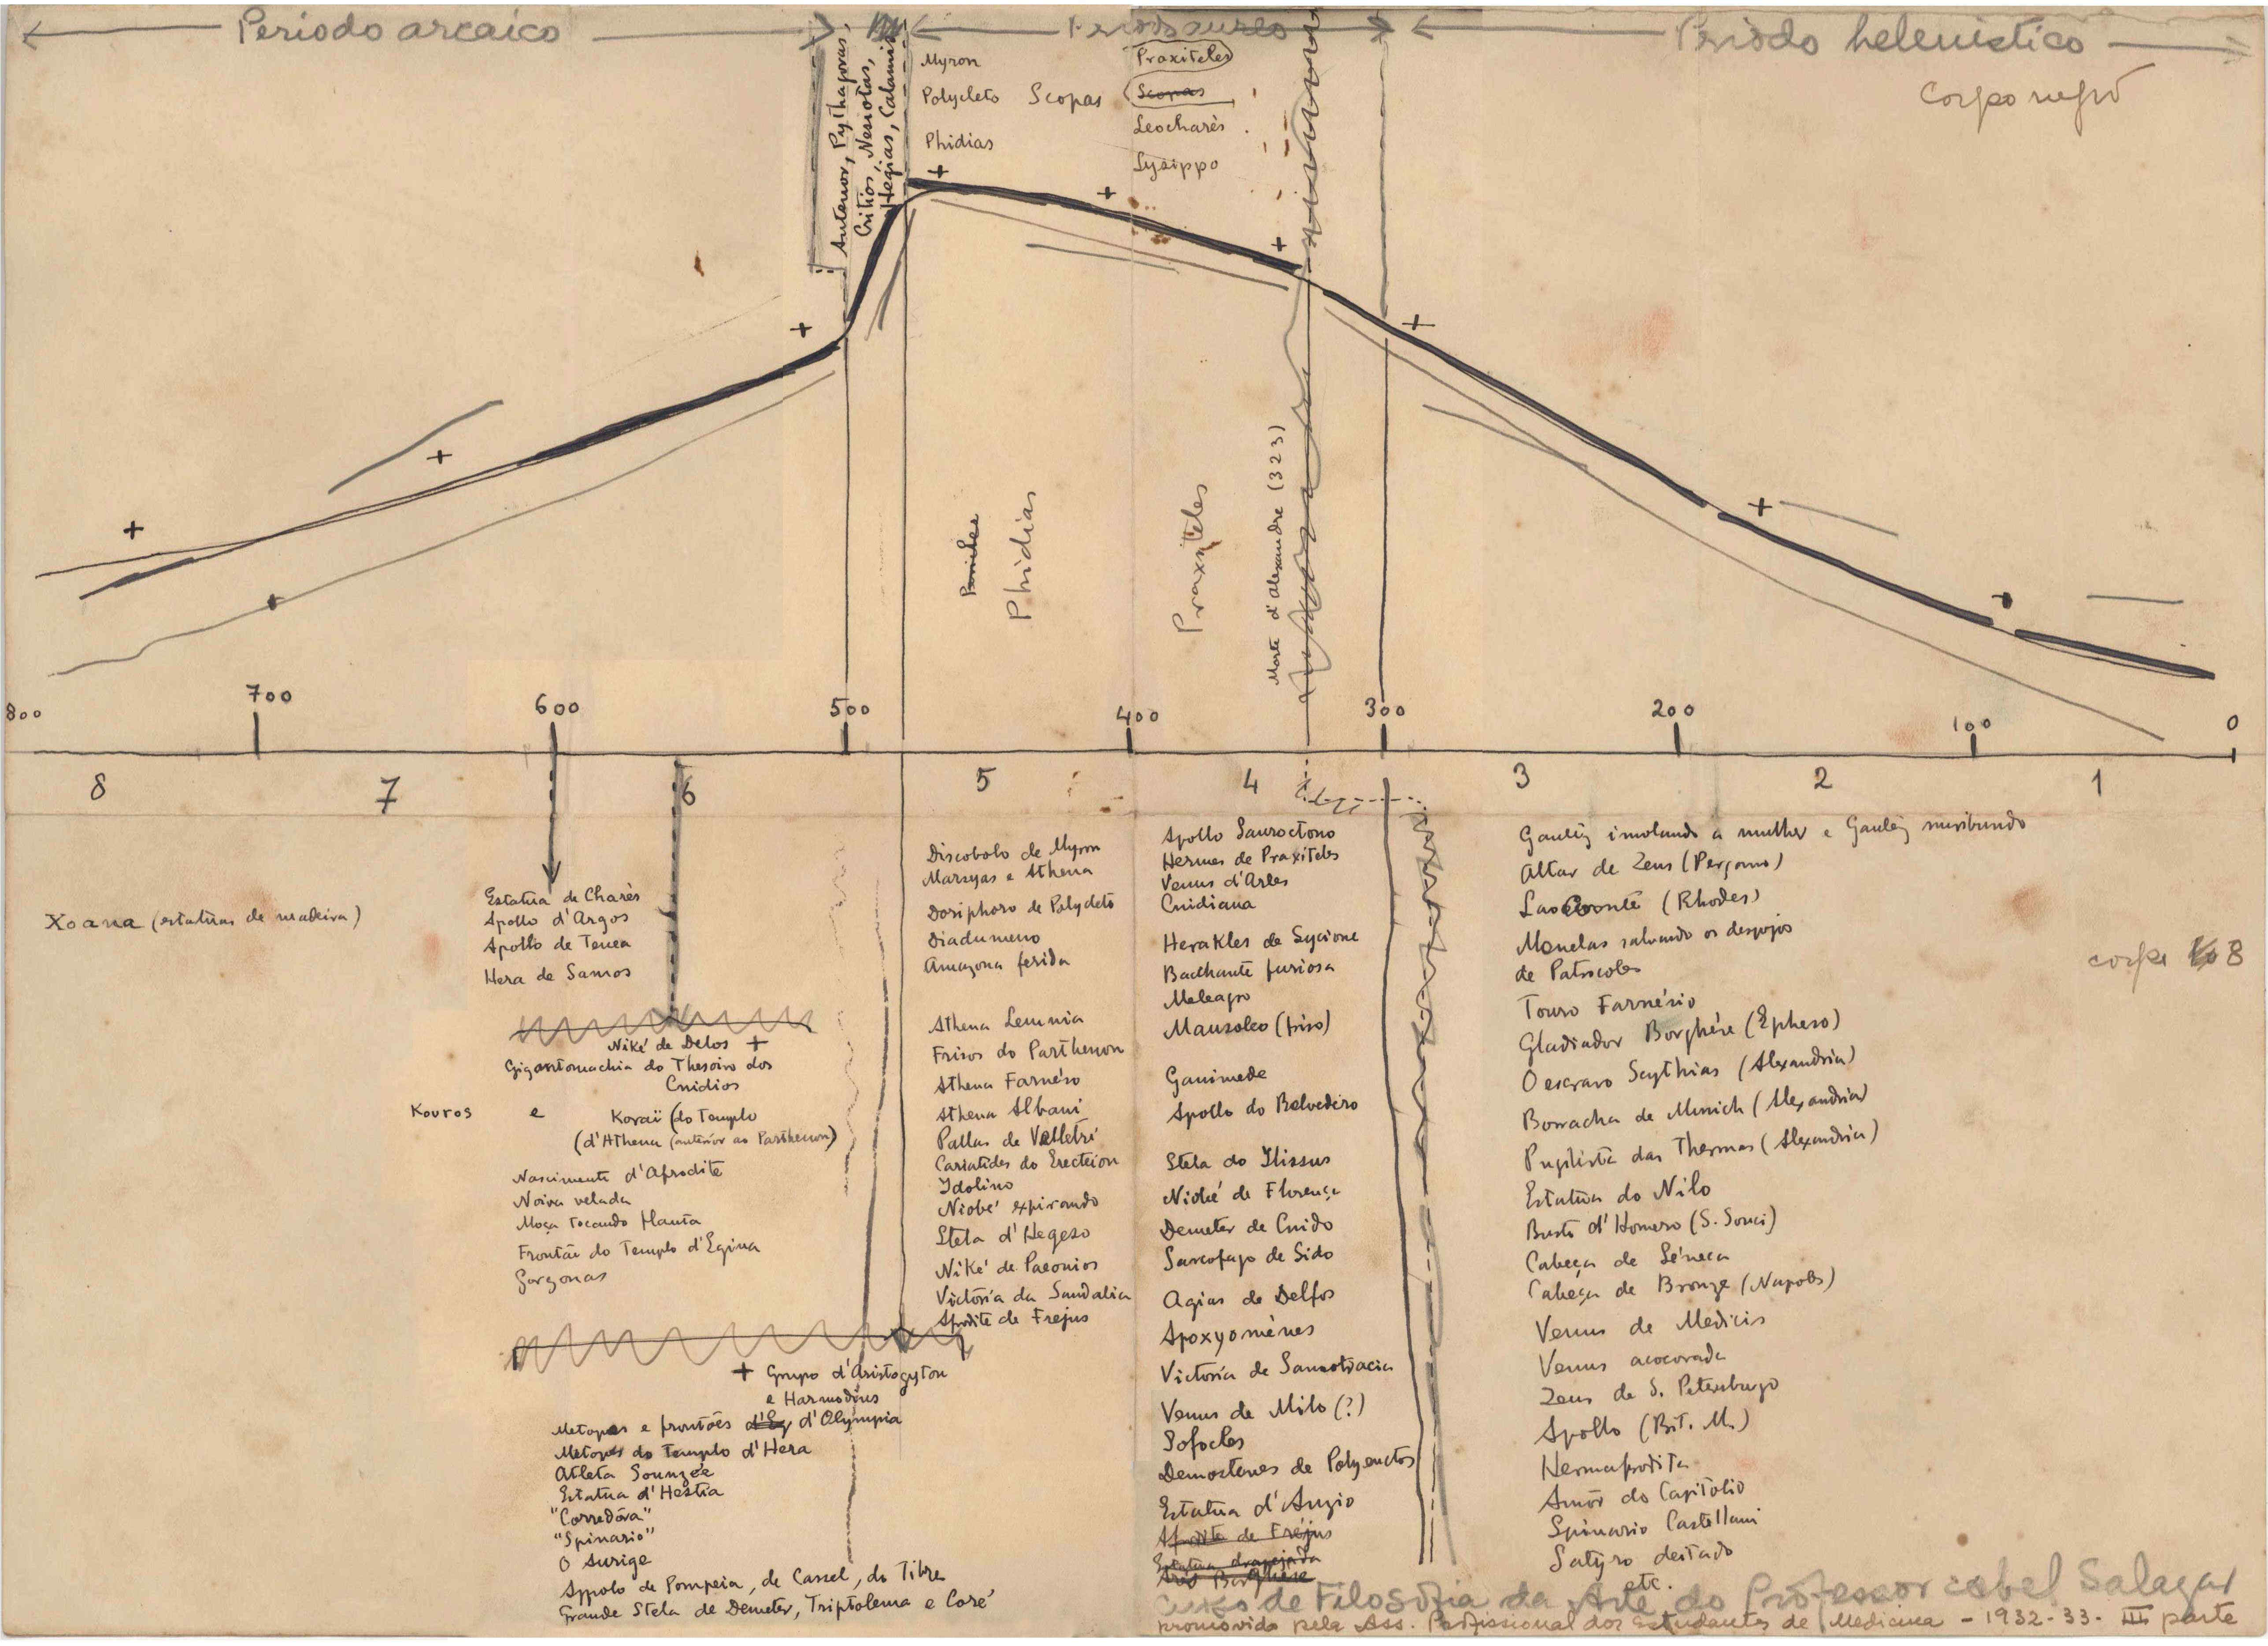 Periodo arcaico
Periodo aureo
Periodo helenistico
corpo negro
Antenor, Pythagoras,
Critios, Nesiotas,
Hegias, Calamis
Myron
Polycleto Scopas
Phidias
Praxiteles
Scopas
Leocharès
Lysippo
Phidias
Praxiteles
Morte d'Alexandre (323)
800
700
600
500
400
300
200
100
0
8
7
6
5
4
3
2
1
Xoana (estatuas de madeira)
Estatua de Charès
Apollo d'Argos
Apollo de Tenea
Hera de Samos
Niké de Delos +
Gigantomachia do Thesoiro dos
Cnidios
Kouros e Koraï (do Templo
(d'Athena (anterior ao Parthenon)
Nascimento d'Afrodite
Noiva velada
Moça tocando flauta
Frontão do Templo d'Egina
Gorgonas
+ Grupo d'Aristogyton
e Harmodius
Metopes e frontões d'Eg d'Olympia
Metopes do Templo d'Hera
Atleta Sounzée
Estatua d'Hestia
"Corredôra"
"Spinario"
O Aurige
Appolo de Pompeia, de Cassel, do Tibre
Grande Stela de Demeter, Triptolema e Coré
Discobolo de Myron
Marsyas e Athena
Doriphoro de Polycleto
Diadumeno
Amazona ferida
Athena Lemnia
Frisos do Parthenon
Athena Farnéso
Athena Albani
Pallas de Velletri
Cariatides do Erecteion
Idolino
Niobé expirando
Stela d'Hegeso
Niké de Paeonios
Victoria da Sandalia
Afrodite de Frejus
Apollo Sauroctono
Hermes de Praxiteles
Venus d'Arles
Cnidiana
Herakles de Sycione
Bacchante furiosa
Meleagro
Mausoleo (friso)
Ganimede
Apollo do Belvedero
Stela do Ilissus
Niobé de Florença
Demeter de Cnido
Sarcofago de Sido
Agias de Delfos
Apoxyomènes
Victoria de Samotracia
Venus de Milo (?)
Sofocles
Demostenes de Polyeuctos
Estatua d'Anzio
Afrodite de Fréjus
Estatua drapejada
Arès Borghèse
Gaulêz imolando a mulher e Gaulêz muribundo
Altar de Zeus (Pergamo)
Laocoonte (Rhodes)
Menelas salvando os despojos
de Patrocoles
Touro Farnésio
Gladiador Borghése (Epheso)
O escravo Scythias (Alexandria)
Borracha de Munich (Alexandria)
Pugilista das Thermas (Alexandria)
Estatua do Nilo
Busto d'Homero (S. Souci)
Cabeça de Séneca
Cabeça de Bronze (Napoles)
Venus de Medicis
Venus acocorada
Zeus de S. Petersburgo
Apollo (Brit. M.)
Hermafrodita
Amôr do Capitolio
Spinario Castellani
Satyro deitado
etc.
corpo 8
Curso de Filosofia da Arte do Professor Abel Salazar
promovido pela Ass. Profissional dos Estudantes de Medicina - 1932-33- III parte